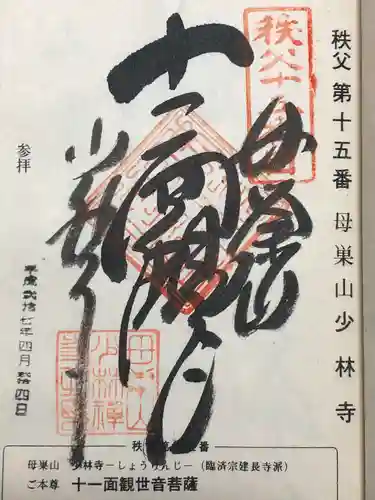 秩父 第十五番 母巣山少林寺
秩父十五番
母巣山
十一面観音
少林寺
参拝
平成弐拾七年四月弐拾四日
秩父第十五番
母巣山 少林寺－しょうりんじ－（臨済宗建長寺派）
ご本尊 十一面観世音菩薩